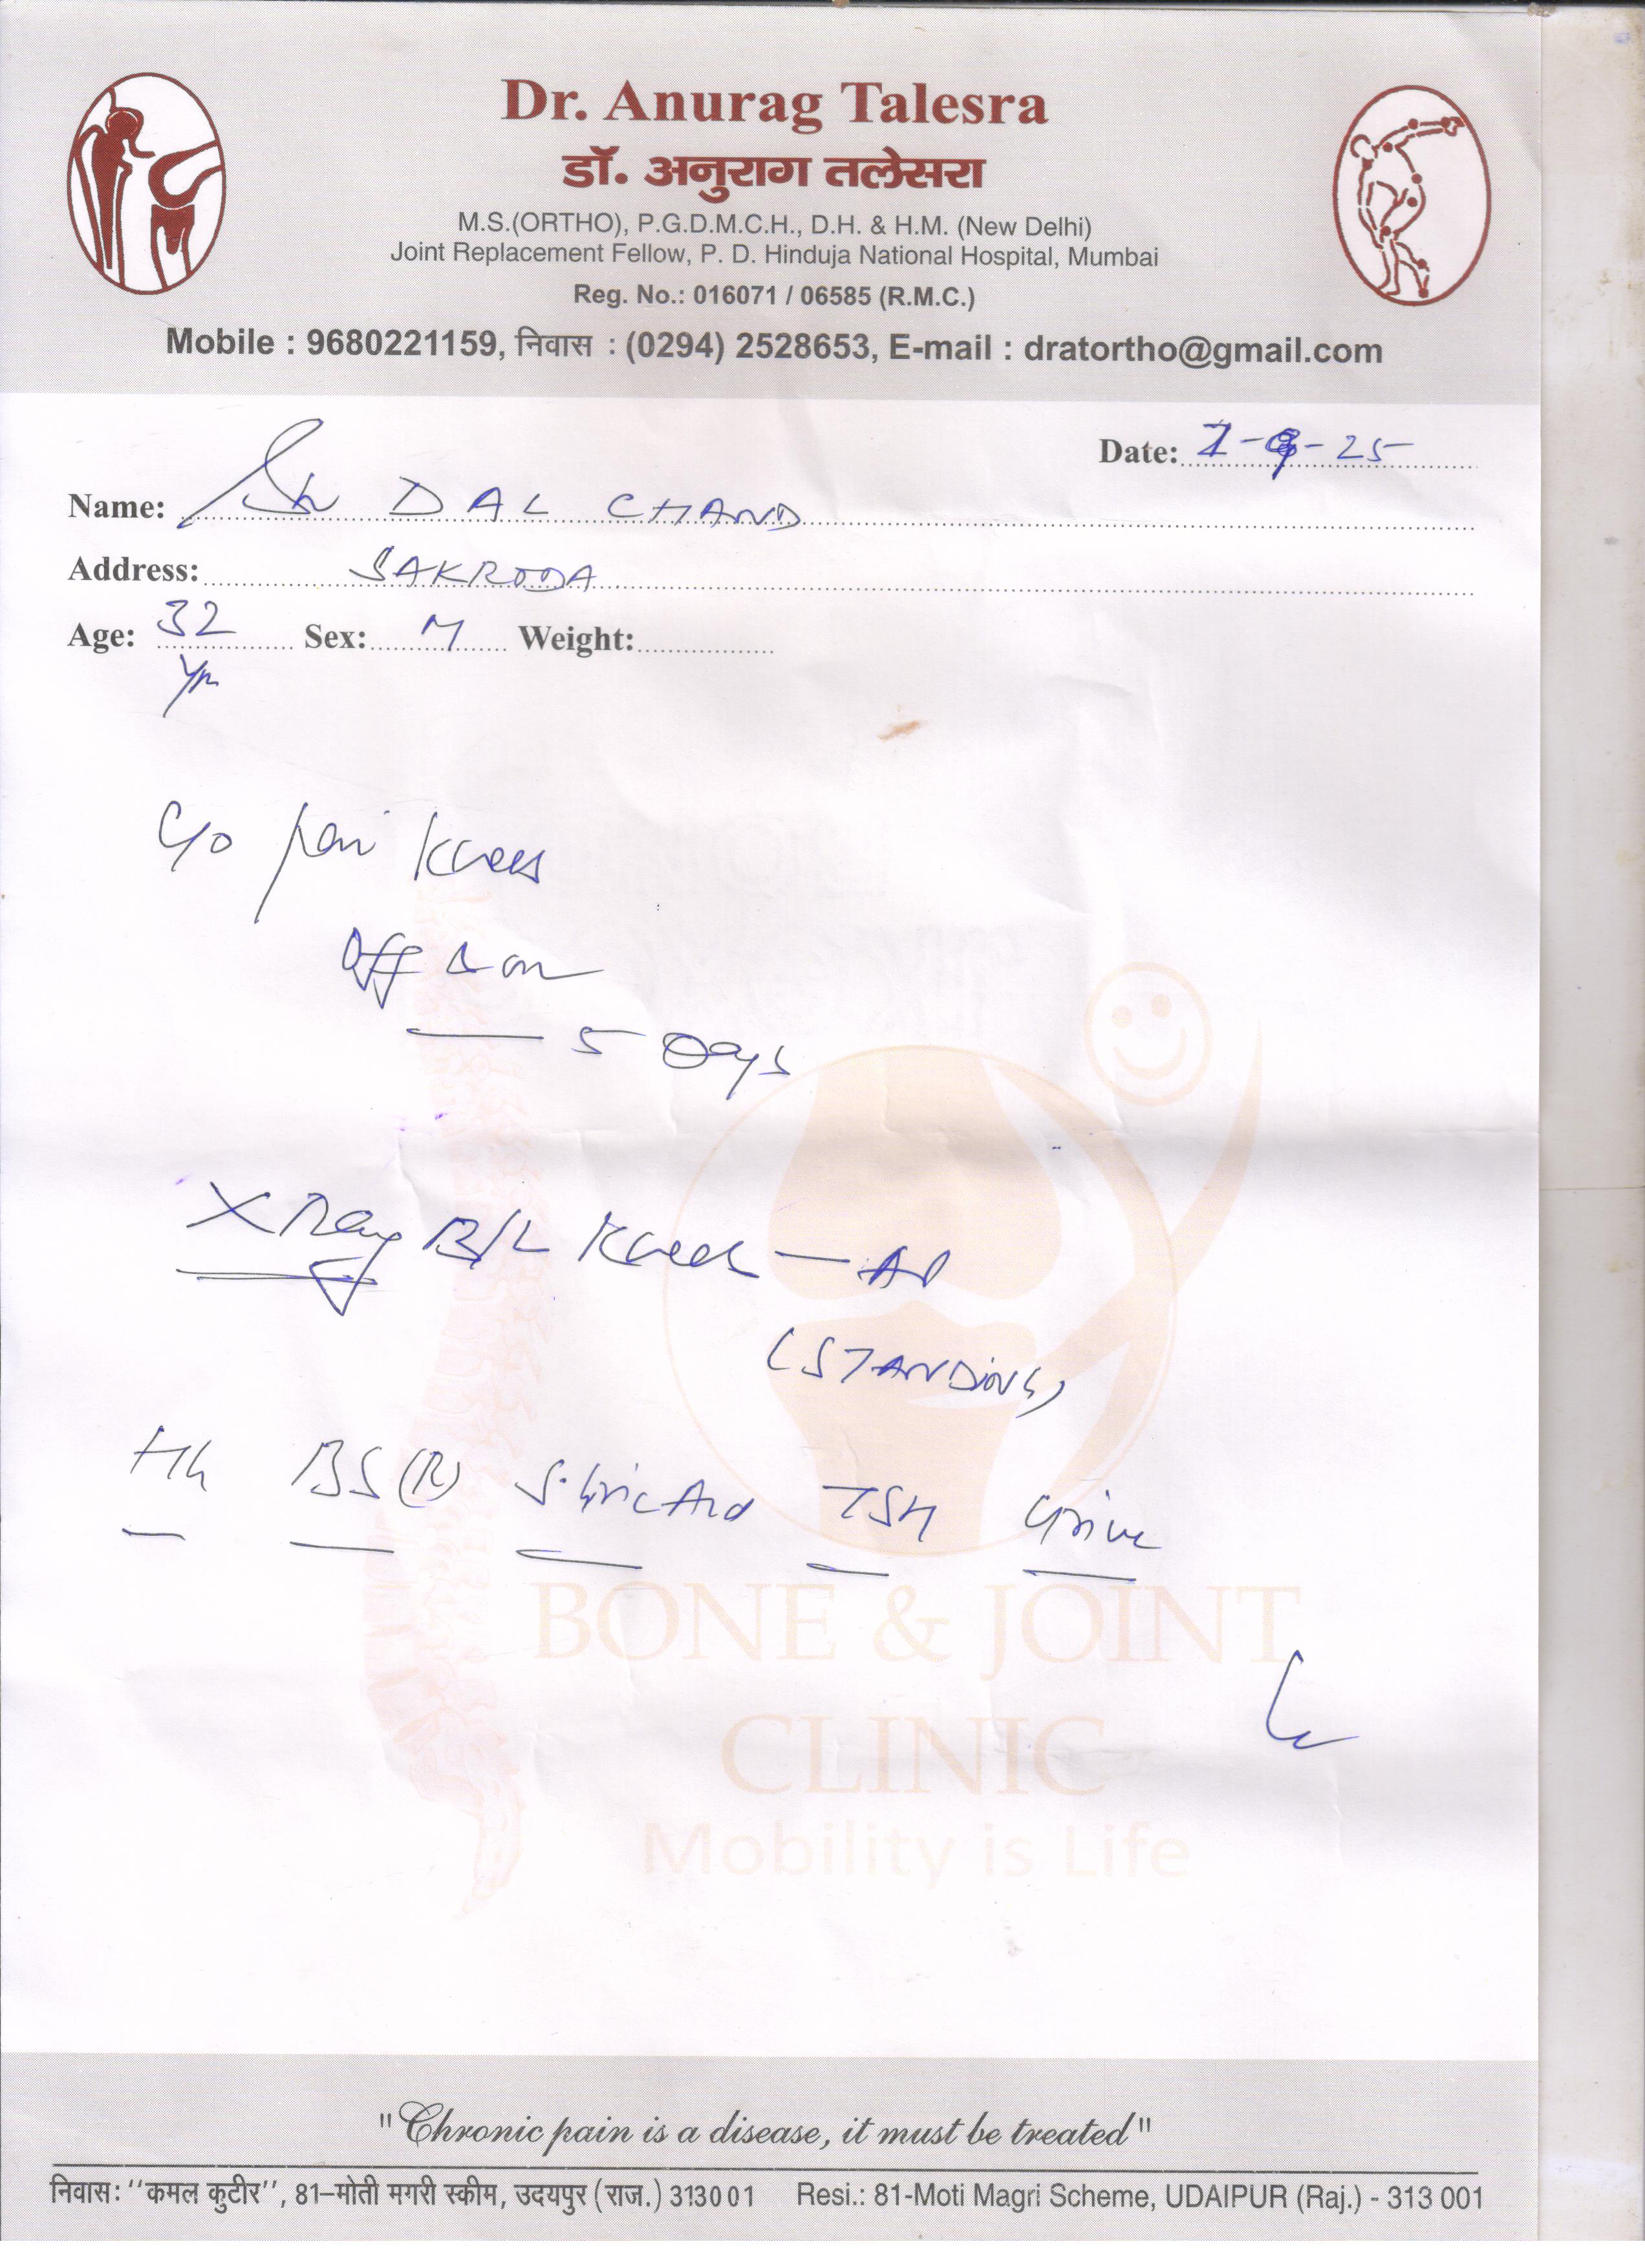 Dr. Anurag Talesra
डॉ. अनुराग तलेसरा
M.S.(ORTHO), P.G.D.M.C.H., D.H. & H.M. (New Delhi)
Joint Replacement Fellow, P. D. Hinduja National Hospital, Mumbai
Reg. No.: 016071 / 06585 (R.M.C.)
Mobile : 9680221159, निवास : (0294) 2528653, E-mail : dratortho@gmail.com
Date: -25
Name: DAL CHAND
Address: SAKRODA
Age: 32 Sex: M Weight:
Yr
C/o Pain Knees
Off & on
— 5 Days
X Ray B/L Knees — AP
(STANDING)
Hb BS (R) S. Uric Acid TSH Urine
BONE & JOINT
CLINIC
Mobility is Life
"Chronic pain is a disease, it must be treated"
निवास: ‘‘कमल कुटीर’’, 81–मोती मगरी स्कीम, उदयपुर (राज.) 313001 Resi.: 81-Moti Magri Scheme, UDAIPUR (Raj.) - 313 001